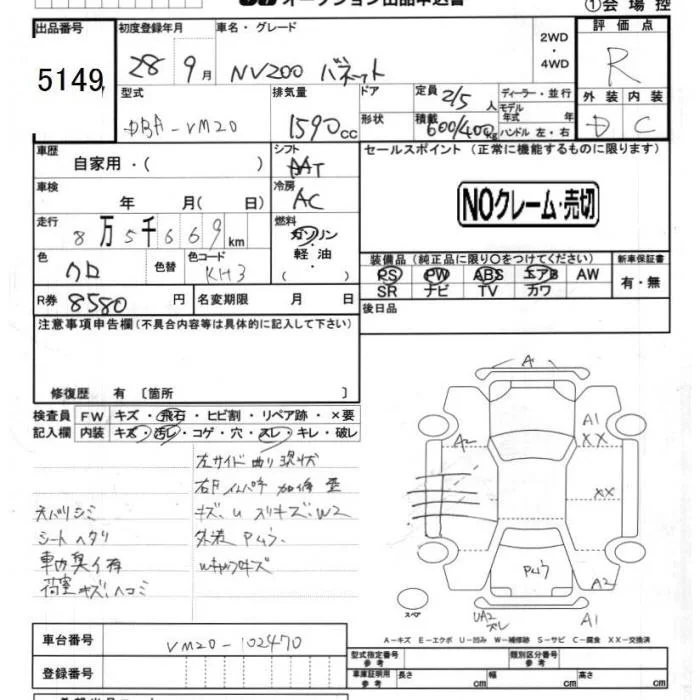 オークション出品申込書
①会場控
出品番号
5149
初度登録年月
28 9月
車名・グレード
NV200 バネット
2WD
・
4WD
評価点
R
外装 内装
D C
型式
DBA-VM20
排気量
1590cc
ドア
形状
定員 2/5 人
積載 600/400kg
ディーラー・並行
モデル年式 年
ハンドル 左・右
車歴
自家用・( )
シフト
AT
セールスポイント(正常に機能するものに限ります)
NOクレーム・売切
車検
年 月( 日)
冷房
AC
走行
8万5千669km
燃料
ガソリン
軽油・
( )
色
クロ
色替
色コード
KH3
装備品(純正品に限り○をつけてください)
PS PW ABS エアB AW
SR ナビ TV カワ
新車保証書
有・無
R券 8580円
名変期限 月 日
後日品
注意事項申告欄(不具合内容等は具体的に記入して下さい)
修復歴 有〔箇所 〕
検査員
記入欄
FW キズ・飛石・ヒビ割・リペア跡・×要
内装 キズ・汚レ・コゲ・穴・スレ・キレ・破レ
左サイド曲り現状
天バリシミ
シートヘタリ
キズ、U スリキズ、W2
車内臭イ有
荷室キズ、ヘコミ
外装Pムラ
A
A1
XX
A2
XX
Pムラ
A2
UA2
ズレ
A1
スペア
A-キズ E-エクボ U-凹み W-補修跡 S-サビ C-腐食 XX-交換済
車台番号
VM20-102470
登録番号
型式指定番号
参考
類別区分番号
参考
車庫証明用
参考
長さ cm
幅 cm
高さ cm